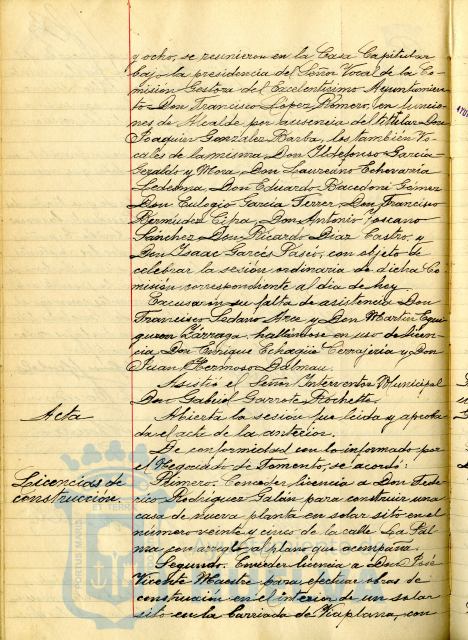 y ocho, se reunieron en la Casa Capitular
bajo la presidencia del Señor Vocal de la Co-
misión Gestora del Excelentísimo Ayuntamien-
to Don Francisco López Romero, en funcio-
nes de Alcalde por ausencia del titular Don
Joaquín González Barba, los también Vo-
cales de la misma Don Ildefonso García
Geraldo y Mora, Don Laureano Echevarría
Ledesma, Don Eduardo Bacedoni Gómez
Don Eulogio García Ferrer, Don Francisco
Bermúdez Don Antonio Toscano
Sánchez Don Ricardo Díaz Castro, y
Don Isaac Garcés Pasio, con objeto de
celebrar la sesión ordinaria de dicha Co-
misión correspondiente al día de hoy.
Excusaron su falta de asistencia Don
Francisco Ledano Arce y Don Martín Egui-
Zárraga, hallándose en uso de licen-
cia Don Enrique Echagüe Cerrajería y Don
Juan Hermoso Dalmau.
Asistió el Señor Interventor Municipal
Don Gabriel Garrote Rochette.
Acta
Abierta la sesión fue leída y aproba-
da el acta de la anterior.
De conformidad con lo informado por
el Negociado de Fomento, se acordó:
Licencias de
construcción.
Primero. Conceder licencia a Don Fede-
rico Rodríguez Galán para construir una
casa de nueva planta en solar sito en el
número veinte y cinco de la calle La Pal-
ma con arreglo al plano que acompaña.
Segundo. Conceder licencia a Don José
Vicente Maestre para efectuar obras de
construcción en el interior de un solar
sito en la Barriada de Viaplana, con
PORTUS MARIS ET TERRÆ